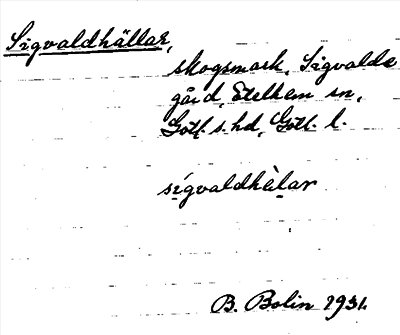 Sigvaldhällar,
skogsmark, Sigvalds
gård, Etelhem sn,
Gotl. s. hd, Gotl. l.
sígvaldhèlar
B. Bolin 1931.